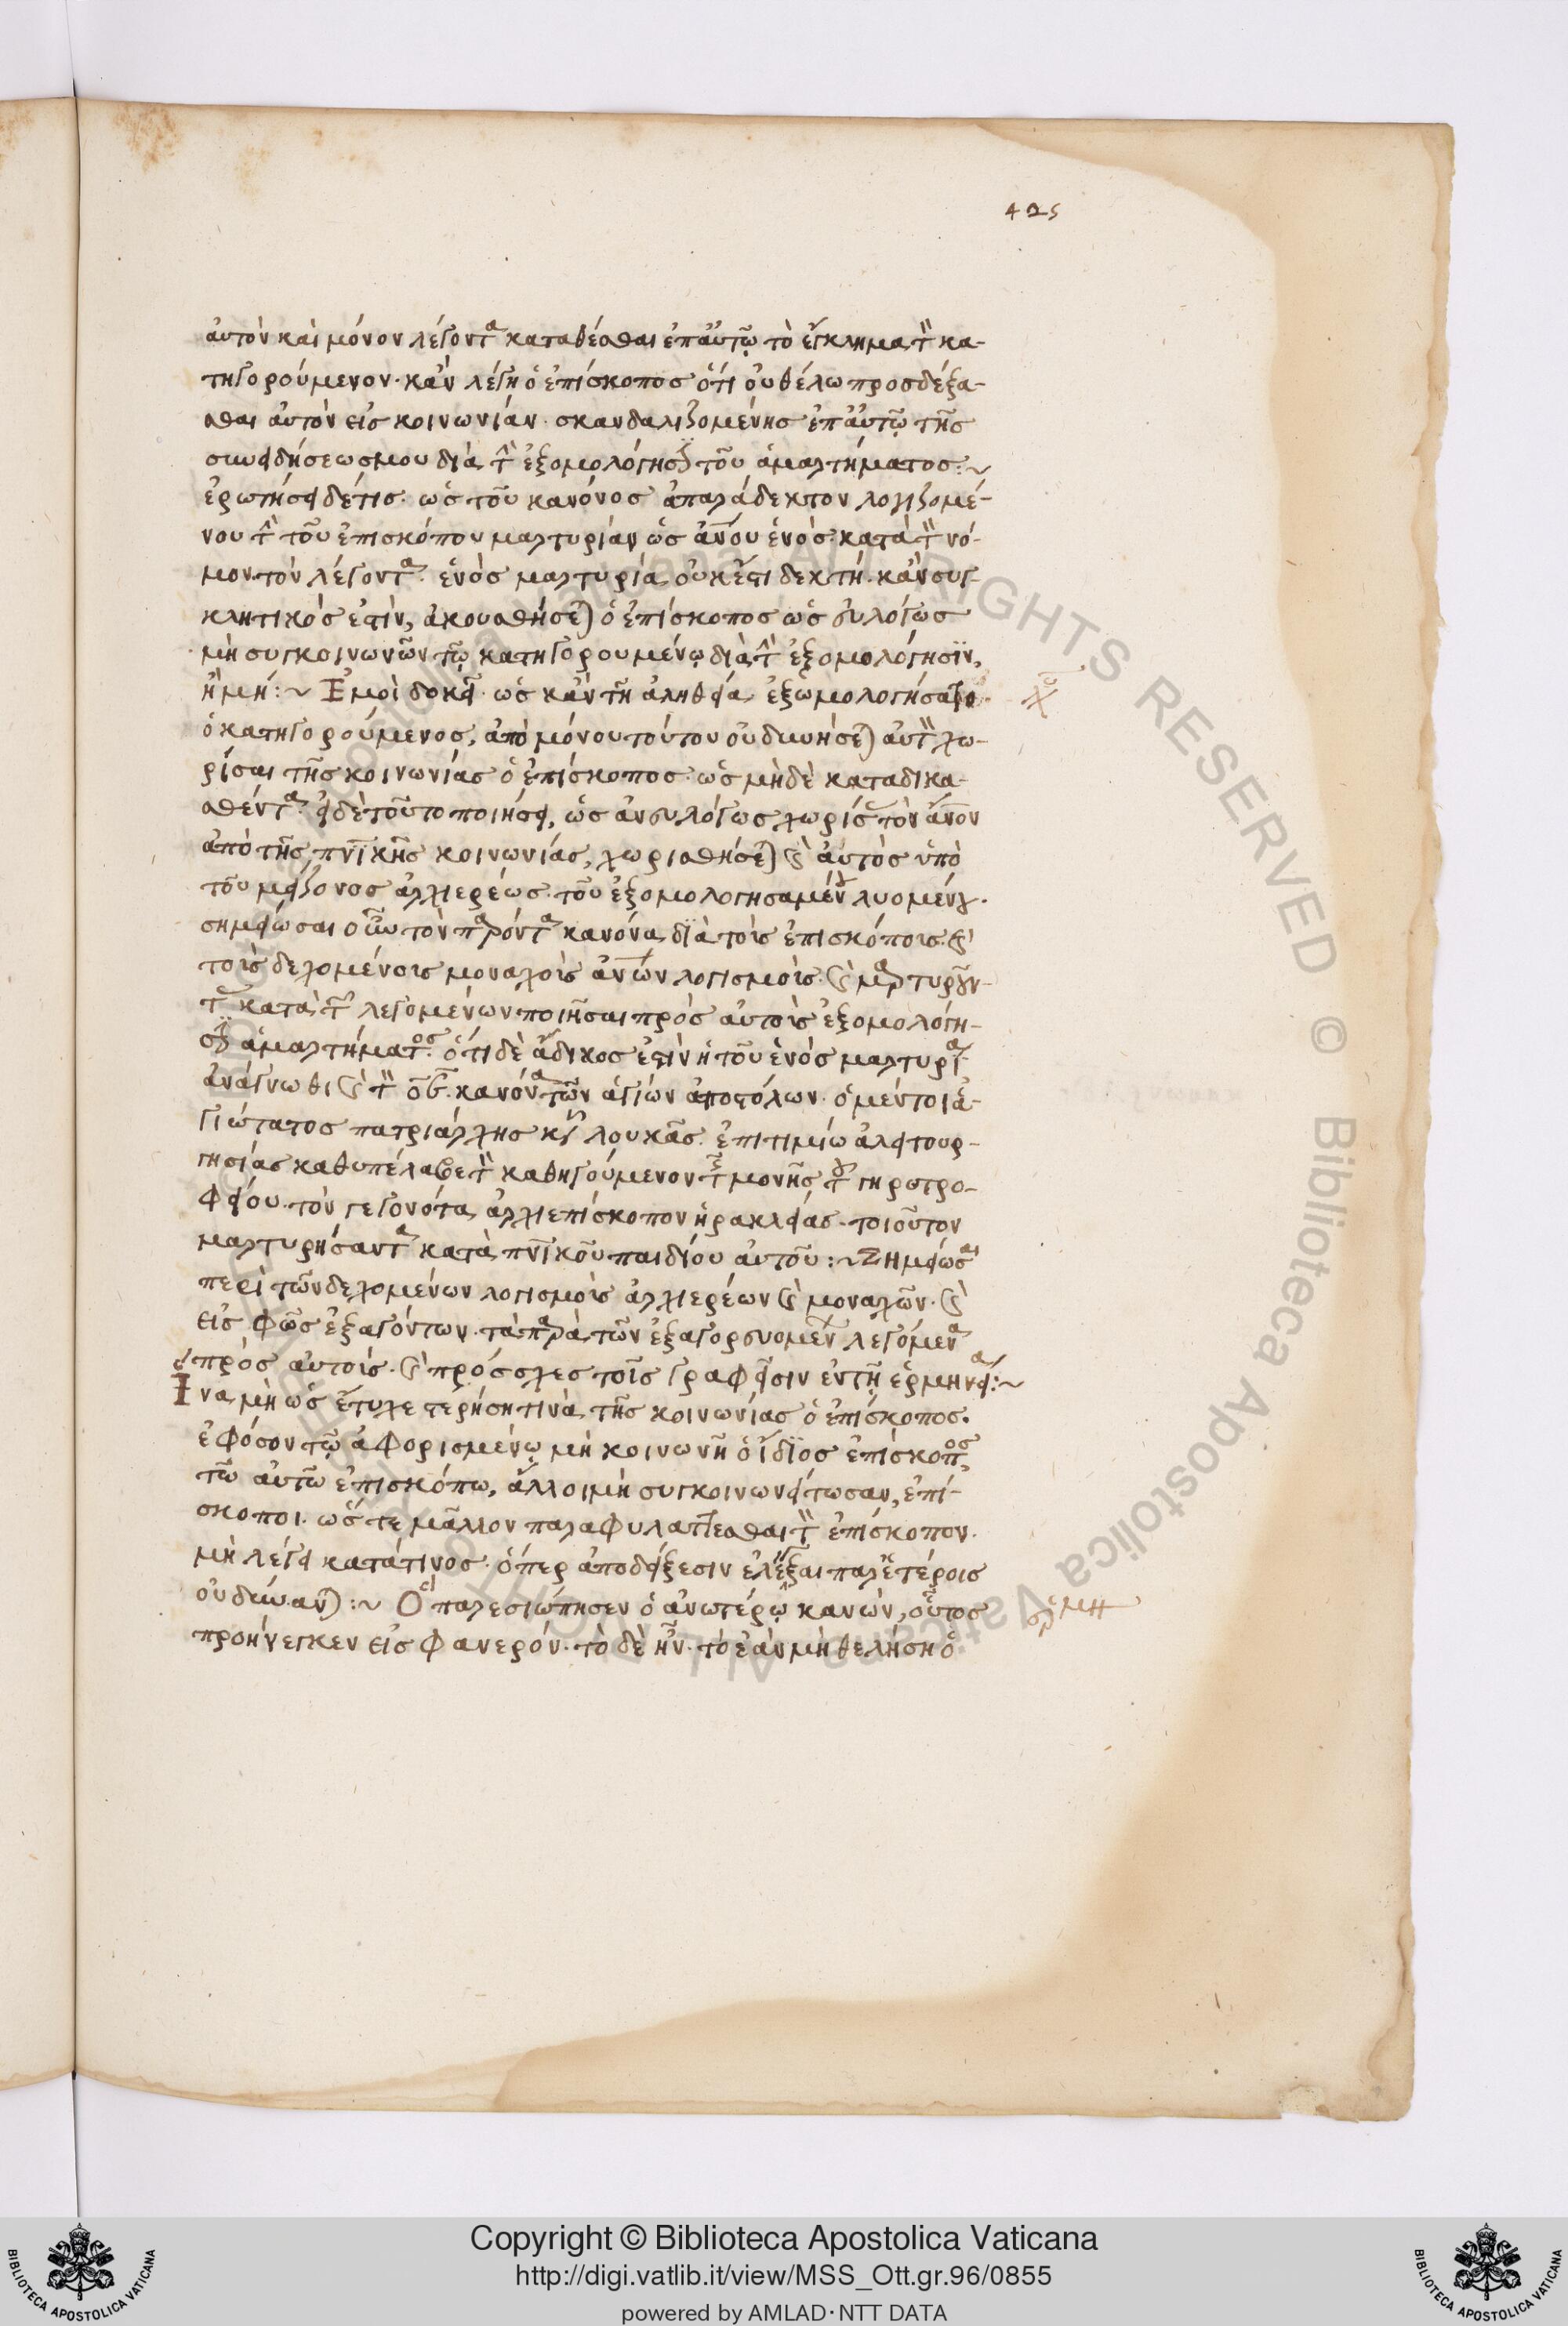 425
αὐτὸν καὶ μόνον λέγοντα καταθέσθαι ἐπ αὐτῷ τὸ ἔγκλημα τὸν κα-
τηγορούμενον· κἂν λέγη ὁ ἐπίσκοπος ὅτι οὐ θέλω προσδέξα-
σθαι αὐτὸν εἰς κοινωνίαν· σκανδαλιζομένης ἐπ αὐτῷ τῆς
συνειδήσεώς μου διὰ τὴν ἐξομολόγησιν τοῦ ἁμαρτήματος:~
ἐρωτήσει δέ τις· ὡς τοῦ κανόνος ἀπαράδεκτον λογιζομέ-
νου τὴν τοῦ ἐπισκόπου μαρτυρίαν ὡς ἀνου ἑνὸς· κατὰ τὸν νό-
μον τὸν λέγοντα· ἑνὸς μαρτυρία οὐκ ἔστι δεκτή· κἂν συγ-
κλητικός ἐστιν, ἀκουσθήσεται ὁ ἐπίσκοπος ὡς εὐλόγως
μὴ συγκοινωνῶν τῷ κατηγορουμένῳ διὰ τὴν ἐξομολόγησϊν,
ἢ μή:~ Ἐμοὶ δοκεῖ· ὡς κἂν τῆ ἀληθείᾳ ἐξωμολογήσατο
ὁ κατηγορούμενος, ἀπὸ μόνου τούτου οὐ δυνήσεται αὐτὸν χω-
ρίσαι τῆς κοινωνίας ὁ ἐπίσκοπος· ὡς μὴ δὲ καταδικα-
σθέντα· εἰ δὲ τοῦτο ποιήσει, ὡς ἂν εὐλόγως χωρίσας τὸν ἄνον
ἀπὸ τῆς πνικῆς κοινωνίας, χωρισθήσεται καὶ αὐτὸς ὑπὸ
τοῦ μείζονος ἀρχιερέως· τοῦ ἐξομολογησαμένου λυομένου·
σημείωσαι οὖν τὸν παρόντα κανόνα διὰ τοὺς ἐπισκόπους· καὶ
τοὺς δεχομένους μοναχοὺς ἀνων λογισμοὺς· καὶ μαρτυροῦν-
τας κατὰ τῶν λεγομένων ποιῆσαι πρὸς αὐτοὺς ἐξομολόγη-
σιν ἁμαρτήματος· ὅτι δὲ ἄδικος ἐστὶν ἡ τοῦ ἑνὸς μαρτυρία
ἀνάγνωθι καὶ τὸν οε κανόνα τῶν ἁγίων ἀποστόλων· ὁ μέντοι ἁ-
γιώτατος πατριάρχης κῦρ λουκᾶς· ἐπιτιμίω ἀλειτουρ-
γησίας καθυπέλαβε τὸν καθηγούμενον τῆς μονῆς τοῦ γηροτρο-
φείου· τὸν γεγονότα ἀρχιεπίσκοπον ἡρακλείας· τοιοῦτον
μαρτυρήσαντα κατὰ πνικοῦ παιδίου αὐτοῦ:~ Σημείωσαι
περὶ τῶν δεχομένων λογισμοὺς ἀρχιερέων καὶ μοναχῶν· καὶ
εἰς φῶς ἐξαγόντων· τὰ παρὰ τῶν ἐξαγορευομένων λεγόμενα
πρὸς αὐτοὺς· καὶ πρόσχες τοῖς γραφεῖσιν ἐν τῇ ἑρμηνείᾳ:~
Ἵνα μὴ ὡς ἔτυχε στερήση τινὰ τῆς κοινωνίας ὁ ἐπίσκοπος·
ἐφόσον τῷ ἀφορισμένῳ μὴ κοινωνῆ ὁ ἴδϊος ἐπίσκοπος,
τῶ αὐτῶ ἐπισκόπω, ἄλλοι μὴ συγκοινωνείτωσαν, ἐπί-
σκοποι· ὥστε μᾶλλον παραφυλάττεσθαι τὸν ἐπίσκοπον·
μὴ λέγει κατά τινος· ὅπερ ἀποδείξεσιν ἐλέγξαι παρ ἑτέροις
οὐ δύναται:~ Ὅπερ παρεσιώπησεν ὁ ἀνωτέρω κανὼν, οὗτος
προήνεγκεν εἰς φανερόν· τὸ δὲ ἦν· τὸ ἐὰν μὴ θελήση ὁ
Copyright © Biblioteca Apostolica Vaticana
http://digi.vatlib.it/view/MSS_Ott.gr.96/0855
powered by AMLAD·NTT DATA
BIBLIOTECA APOSTOLICA VATICANA
BIBLIOTECA APOSTOLICA VATICANA